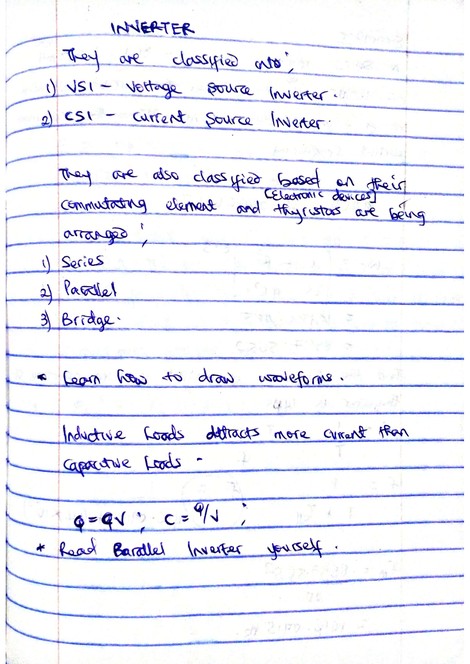 INVERTER
They are classified into;
1) VSI - Voltage Source Inverter.
2) CSI - Current Source Inverter.
They are also classified based on their
[Electronic devices]
Commutating element and thyristors are being
arranged;
1) Series
2) Parallel
3) Bridge.
* Learn how to draw waveforms.
Inductive Loads attracts more current than
Capacitive Loads -
q = qV ; C = q/V ;
* Read Parallel Inverter yourself.